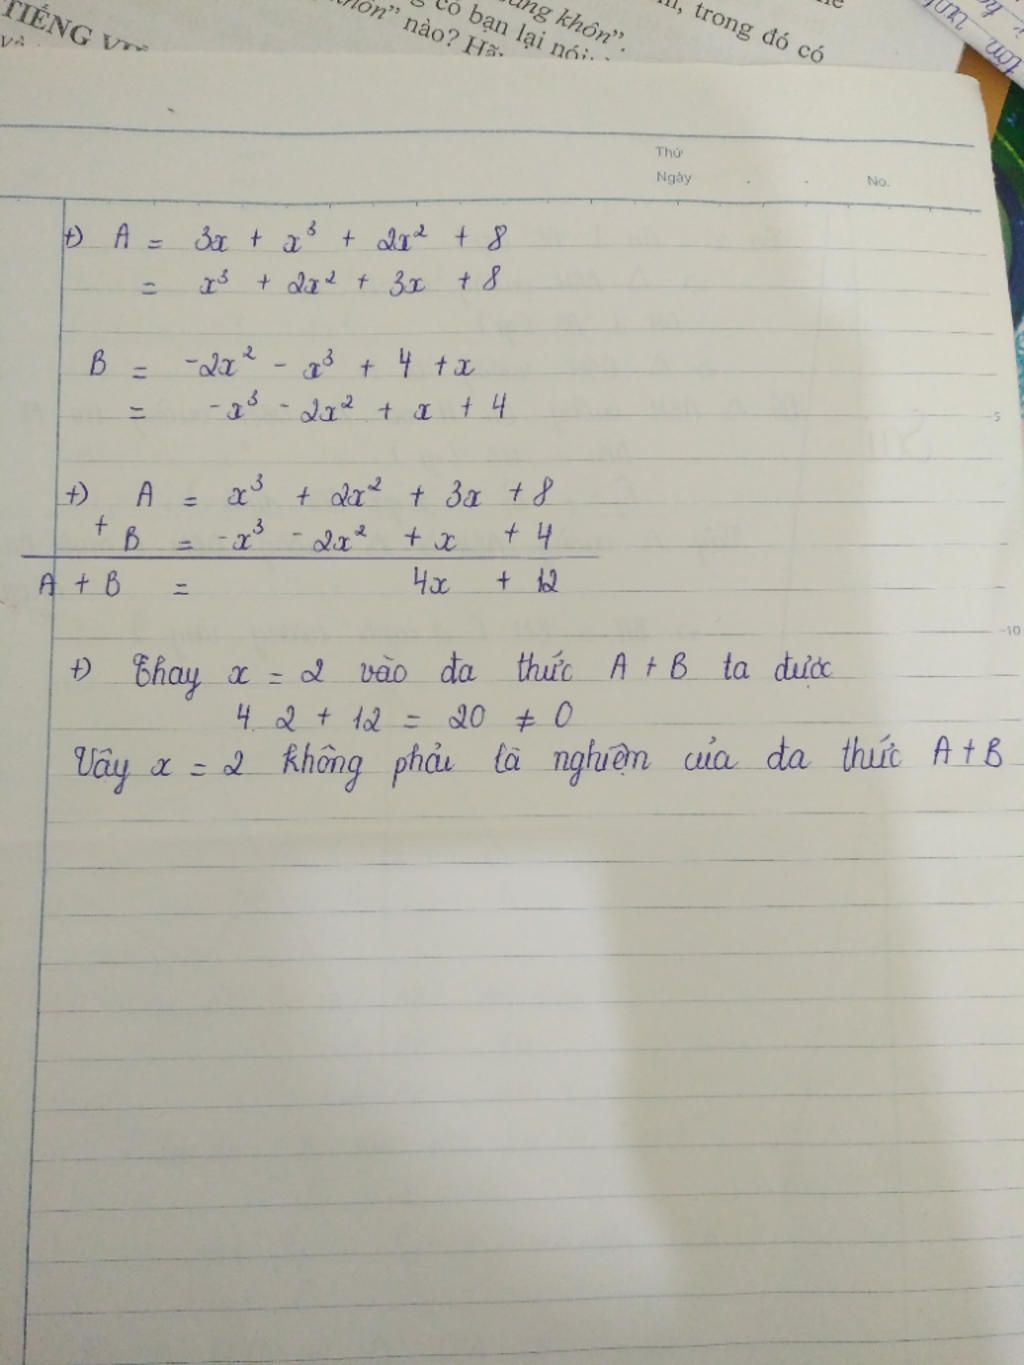 TIẾNG
có bạn lại nói
khôn".
trong đó có
khôn" nào? Hã
Thứ
Ngày . . No.
+) A = 3x + x³ + 2x² + 8
= x³ + 2x² + 3x + 8
B = -2x² - x³ + 4 + x
= -x³ - 2x² + x + 4
5
+) A = x³ + 2x² + 3x + 8
+ B = -x³ - 2x² + x + 4
A + B = 4x + 12
10
+) Thay x = 2 vào đa thức A + B ta được
4. 2 + 12 = 20 ≠ 0
Vậy x = 2 không phải là nghiệm của đa thức A + B